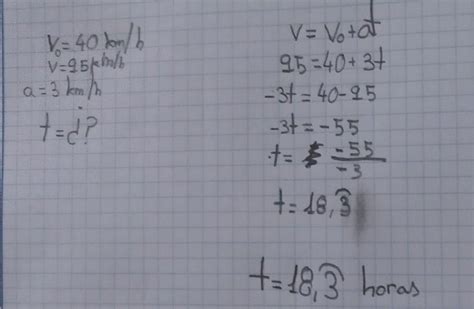 V₀=40 km/h
V=95 km/h
a=3 km/h
t=¿?
V = V₀+at
95=40+3t
-3t=40-95
-3t=-55
t= -55/-3
t=18,3̂
t=18,3̂ horas